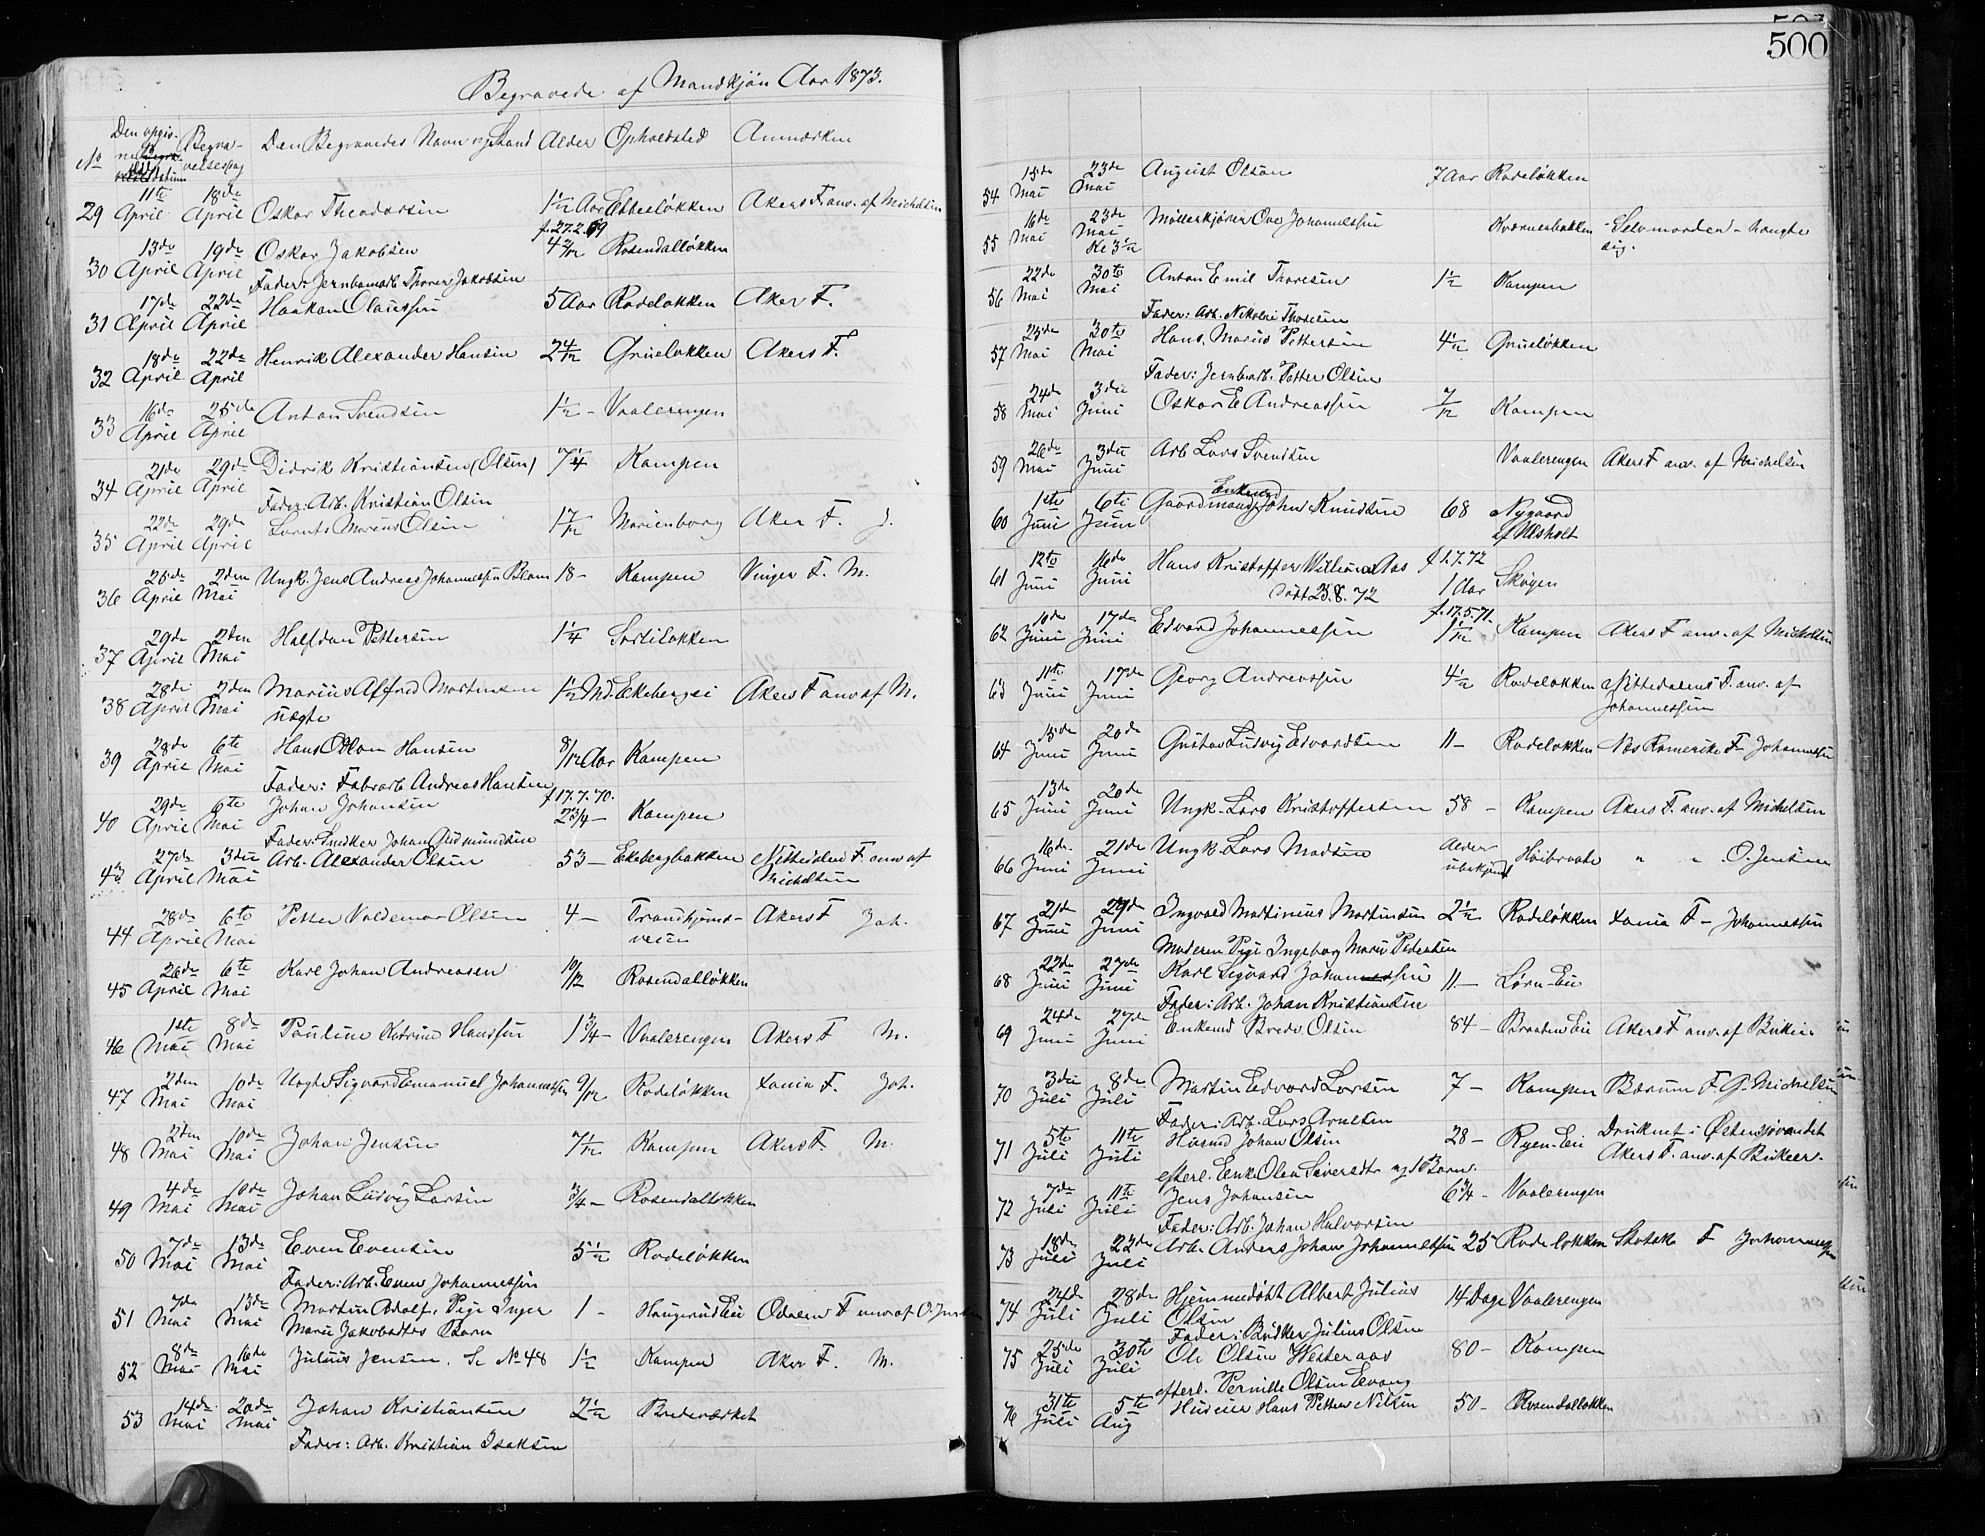 Begravede af Mandkjön Aar 1873.
No Begravelsesdag Den Begravedes Navn og Stand Alder Opholdsted Anmærken
29 11te April 18de April Oskar Theodorsen 1 1/2 Aar Ebbesløkken Akers F. anv. af Michelsen
30 13de April 19de April Oskar Jakobsen f. 27.2.69 4 2/12 Rosendalløkken
Fader: Jernbanearb. Thorer Jakobsen
31 17de April 22de April Haakon Olaussen 5 Aar Rodeløkken Aker F.
32 18de April 22de April Henrik Alexander Hansen 2 4/12 Grüneløkken Akers F.
33 16de April 25de April Anton Svendsen 1 1/2 - Vaalerengen
34 21de April 29de April Didrik Kristiansen (Olsen) 7 1/4 Kampen
Fader: Arb. Kristian Olsen
35 22de April 29de April Lorents Marius Olsen 1 7/12 Marienborg Aker F. J.
36 25de April 2den Mai Ungk. Jens Andreas Johannessen Blom 18 - Kampen Vinger F. M.
37 29de April 2den Mai Halfdan Pettersen 1 1/4 Sorliløkken
38 28de April 2den Mai Marius Alfred Martinsen 1 1/2 Md. Ekebergei Akers F anv af M.
uægte
39 28de April 6te Mai Hans Oskar Hansen 8/12 Aar Kampen
Fader: Fabrarb. Andreas Hansen
40 29de April 6te Mai Johan Johansen f 17.7.70. 2 3/4 - Kampen
Fader: Snedker Johan Gudmundsen
43 27de April 3die Mai Arb. Alexander Olsen 53 - Ekebergbakken Nittedalen F. anv af
Michelsen
44 28de April 6te Mai Petter Valdemar Olsen 4 - Trondhjems-
veien Akers F Joh.
45 26de April 6te Mai Karl Johan Andreasen 10/12 Rosendalløkken
46 1ste Mai 8de Mai Pauline Katrine Hanssen 1 3/4 - Vaalerengen Akers F M.
47 2den Mai 10de Mai Uægte Sigvard Emanuel Johannessen 9/12 Rodeløkken Xania F. Joh.
48 2den Mai 10de Mai Johan Jensen 7/12 Kampen Akers F. M.
49 4de Mai 10de Mai Johan Ludvig Larsen 3/4 - Rosendalløkken
50 7de Mai 13de Mai Even Evensen 5 1/2 Rodeløkken
Fader: Arb. Even Johannessen
51 7de Mai 13de Mai Martin Adolf, Pige Inger 1 - Haugerud Eie Odalen F anv af O. Jensen
Marie Jakobsdtrs Barn
52 8de Mai 16de Mai Julius Jensen. Se No 48 1 1/2 Kampen Aker F. M.
53 14de Mai 20de Mai Johan Kristiansen 2 1/2
Fader: Arb. Kristian Isaksen
500
54 15de Mai 23de Mai August Olsen 7 Aar Rodeløkken
55 16de Mai 23de Mai Kl 3 1/2 Møllerkjører Ove Johannessen Kværnerbakken - Selvmorder - hængte
sig.
56 22de Mai 30te Mai Anton Emil Thoresen 1 1/2 Kampen
Fader: Arb. Nikolai Thoresen
57 25de Mai 30te Mai Hans Marius Pettersen 4 1/2 Grüneløkken
Fader: Jernbarb. Petter Olsen
58 24de Mai 3die Juni Oskar E Andreassen 7/12 Kampen
59 26de Mai 3die Juni Arb Lars Svendsen Vaalerengen Akers F anv. af Michelsen
60 1ste Juni 6te Juni Enkemd Gaardmand Johns Knudsen 68 Nygaard
af Ulsholt
61 12te Juni 16de Juni Hans Kristoffer Wilson Aas f 1.7.72 1 Aar Skøyen
Født 23.8.72
62 10de Juni 17de Juni Edvard Johannessen f. 17.5.71. 1 1/12 Kampen Akers F anv. af Michelsen
63 11te Juni 17de Juni Georg Andreassen 4 1/2 Rodeløkken Nittedalens F. anv. af
Johannessen
64 15de Juni 20de Juni Gustav Ludvig Edvardsen 11 - Rodeløkken Næs Romerike F Johannessen
65 13de Juni 20de Juni Ungk. Lars Kristoffersen 58 - Kampen Akers F. anv. af Michelsen
66 16de Juni 21de Juni Ungk. Lars Madsen Alder ubekjendt Høibraate " " O. Jensen
67 21de Juni 27de Juni Ingvald Martinius Martinsen 2 1/2 Rodeløkken Xania F - Johannessen
Moderen Pige Ingeborg Marie Pedersen
68 22de Juni 27de Juni Karl Sigvard Johansen 11 - Lørn Eie
Fader: Arb. Johan Kristiansen
69 24de Juni 27de Juni Enkemd Brede Olsen 84 - Braaten Eie Akers F anv. af Birkeier
70 3die Juli 8de Juli Martin Edvard Larsen 7 - Kampen Bærum F G. Michelsen
Fader: Arb. Lars Arnesen
71 5te Juli 11te Juli Husmd Johan Olsen 28 - Ryen Eie Druknet i Østensjøvandet
efterl. Enke Olea Siversdtr og 1 Barn. Akers F. anv. af Birkeier.
72 7de Juli 11te Juli Jens Johansen 6 3/4 - Vaalerengen
Fader: Arb. Johan Halvorsen
73 18de Juli 22de Juli Arb. Anders Johan Johannessen 25 Rodeløkken Skotsk F Johannessen
74 24de Juli 28de Juli Hjemmedøbt Albert Julius 14 Dage Vaalerengen
Olsen
Fader: Bødker Julius Olsen
75 25de Juli 30te Juli Ole Olsen Westeraas 80 - Kampen
efterl. Pernille Olsen Evang
76 31te Juli 5te Aug Huseier Hans Petter Nilsen 50 - Rosendalløkken